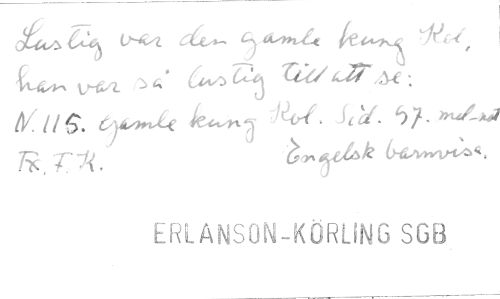 Lustig var den gamle kung Kol,
han var så lustig till att se:
N. 115. Gamle kung Kol. Sid. 97. mel-not
Tx. F. K. Engelsk barnvisa.
ERLANSON-KÖRLING SGB